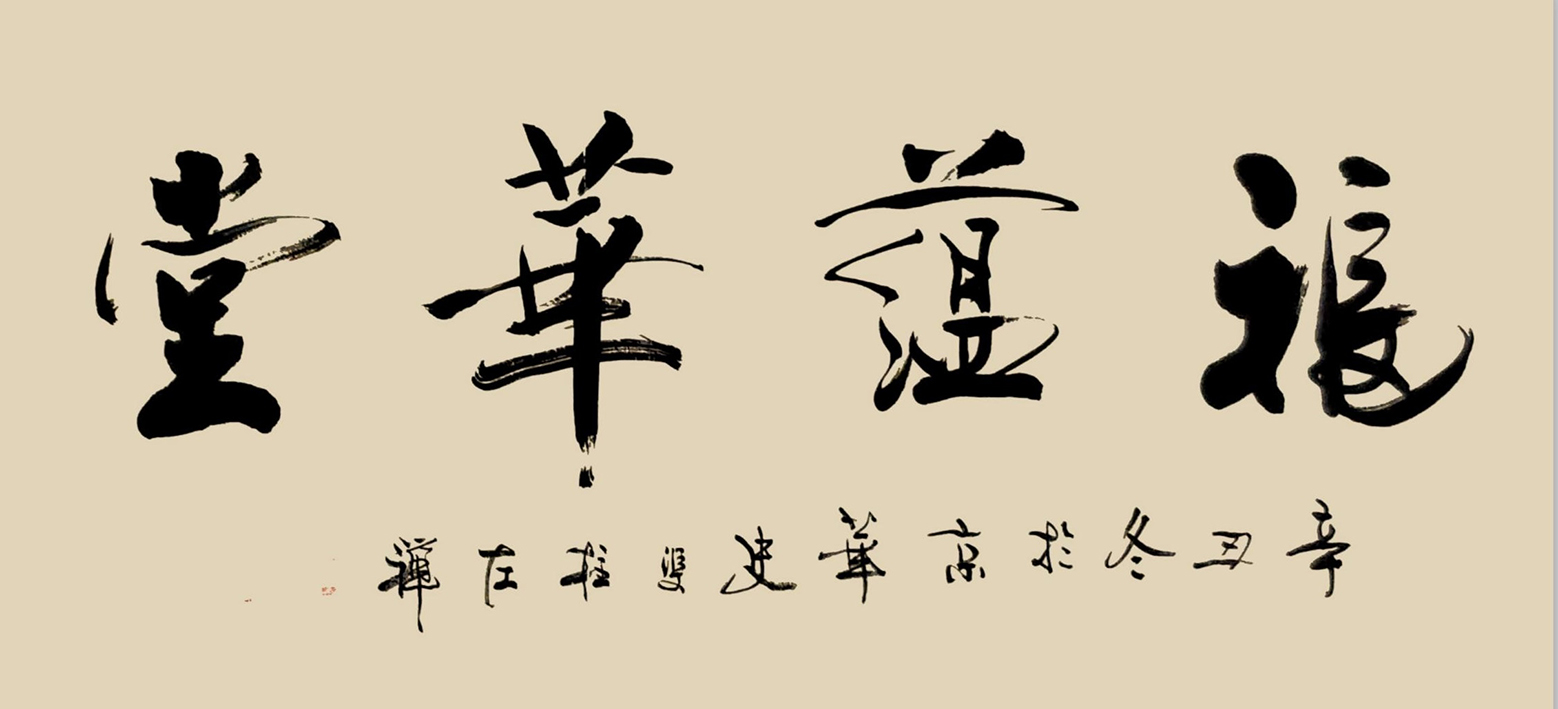 福蕴華堂
辛丑冬於京華史雙柱左禪